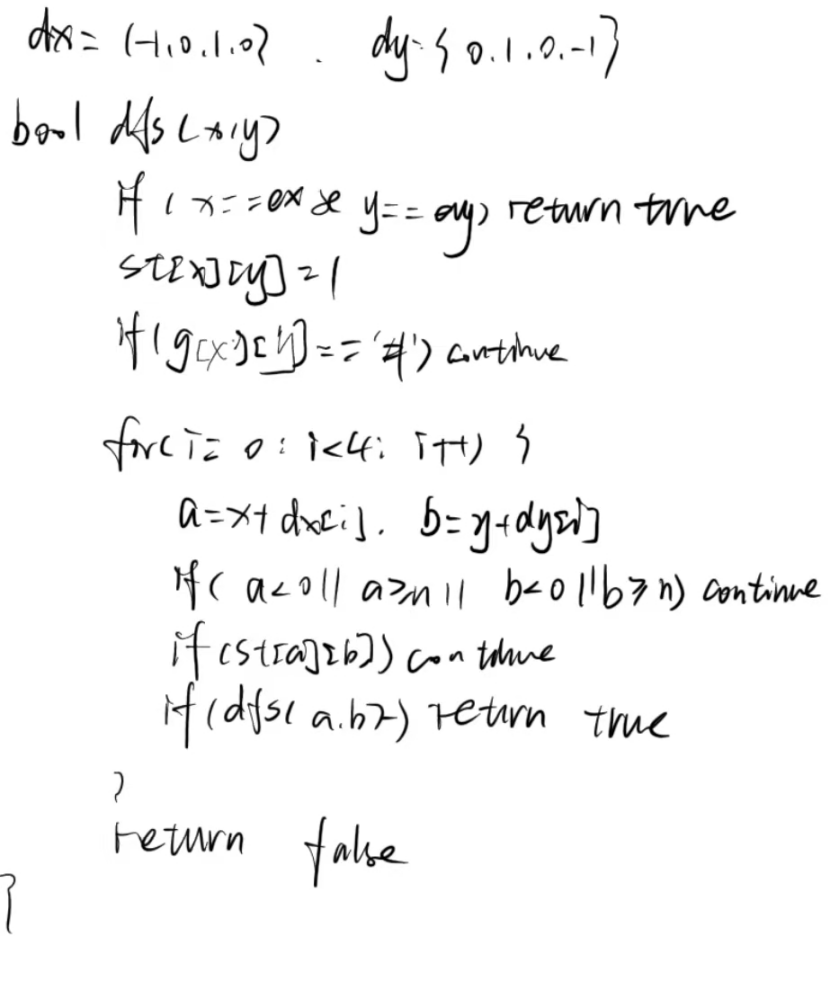 dx = {-1,0,1,0}. dy={0.1.0.-1}
bool dfs(x,y)
if (x==ex & y==ey) return true
st[x][y]=1
if(g[x][y]=='#') continue
for(i=0; i<4; i++) {
a=x+dx[i]. b=y+dy[i]
if(a<0|| a≥n|| b<0||b≥n) continue
if(st[a][b]) continue
if(dfs(a.b)) return true
}
return false
}